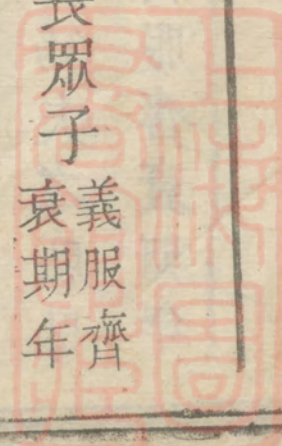 長眾子
義服齊
衰期年